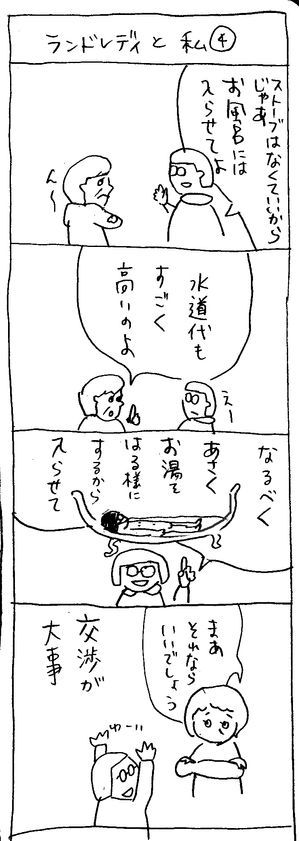 ランドレディと私④
ストーブはなくていいから
じゃあ
お風呂には
入らせてよ
ん〜
水道代も
すごく
高いのよ
えー
なるべく
あさく
お湯を
はる様に
するから
入らせて
まあ
それなら
いいでしょう
わーい
交渉が
大事